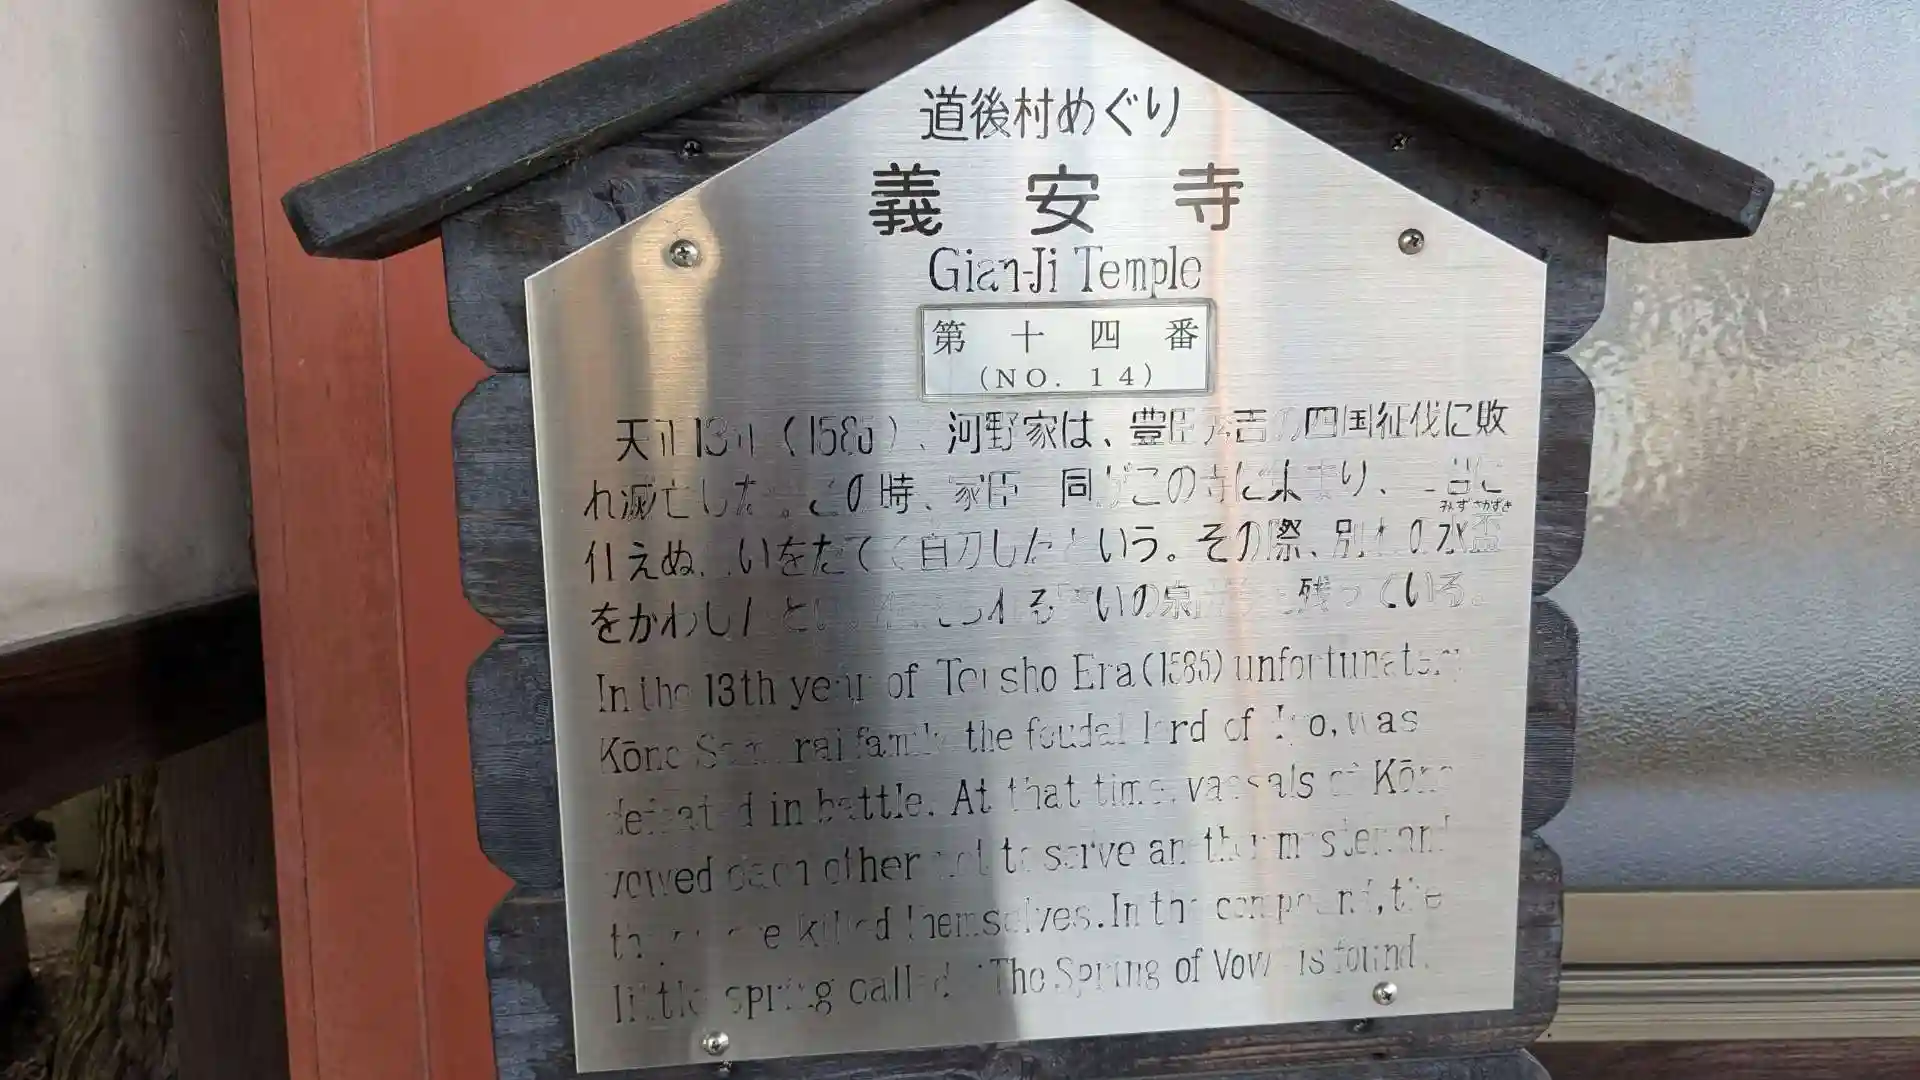 道後村めぐり
義安寺
Gian-Ji Temple
第十四番
(NO. 14)
天正13年（1585）、河野家は、豊臣秀吉の四国征伐に敗
れ滅亡した。この時、家臣一同がこの寺に集まり、二君に
みずさかずき
仕えぬ誓いをたてて自刃したという。その際、別れの水盃
をかわしたといい伝えられる誓いの泉が今も残っている。
In the 13th year of Tensho Era (1585) unfortunately
Kōno Samurai family the feudal lord of Iyo, was
defeated in battle. At that time, vassals of Kōno
vowed each other not to serve another master and
killed themselves. In the compound, the
little spring called "The Spring of Vow" is found.